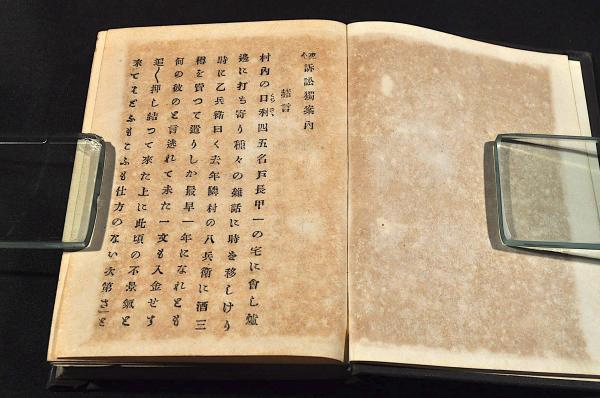 訴訟獨案内
緒言
村内の口利四五名戸長甲一の宅に會し爐
邊に打ち寄り種々の雑話に時を移しけり
時に乙兵衛曰く去年隣村の八兵衛に酒三
樽を賣つて遣りしか最早一年になれとも
何の彼のと言逃れて未た一文も入金せす
追〱押し結つて來た上に此頃の不景氣と
來てはどふもこふも仕方のない次第さ」と